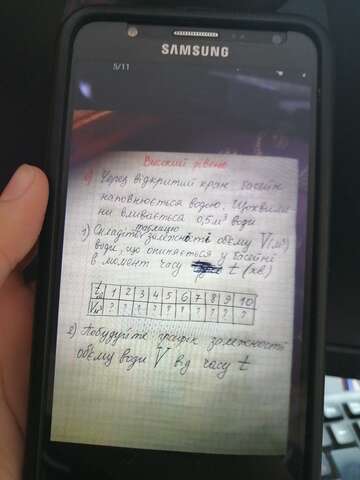 SAMSUNG
5/11
Високий рівень
Через відкритий кран басейн
наповнюється водою. Щохвили-
ни вливається 0,5 м³ води
таблицю
1) Складіть залежності обєму V(м³)
води, що опиняється у басейні
в момент часу t (хв)
t хв 1 2 3 4 5 6 7 8 9 10
V м³ ? ? ? ? ? ? ? ? ? ?
2) Побудуйте графік залежності
обєму води V від часу t